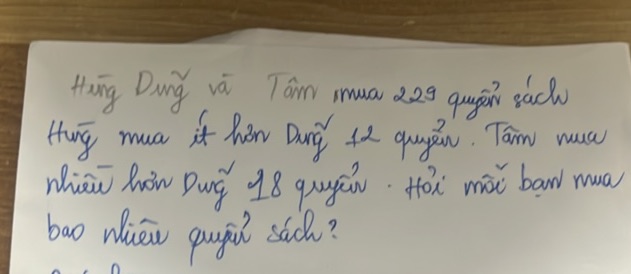 Hùng Dũng và Tâm mua 229 quyển sách
Hùng mua ít hơn Dũng 12 quyển. Tâm mua
nhiều hơn Dũng 18 quyển. Hỏi mỗi bạn mua
bao nhiêu quyển sách?